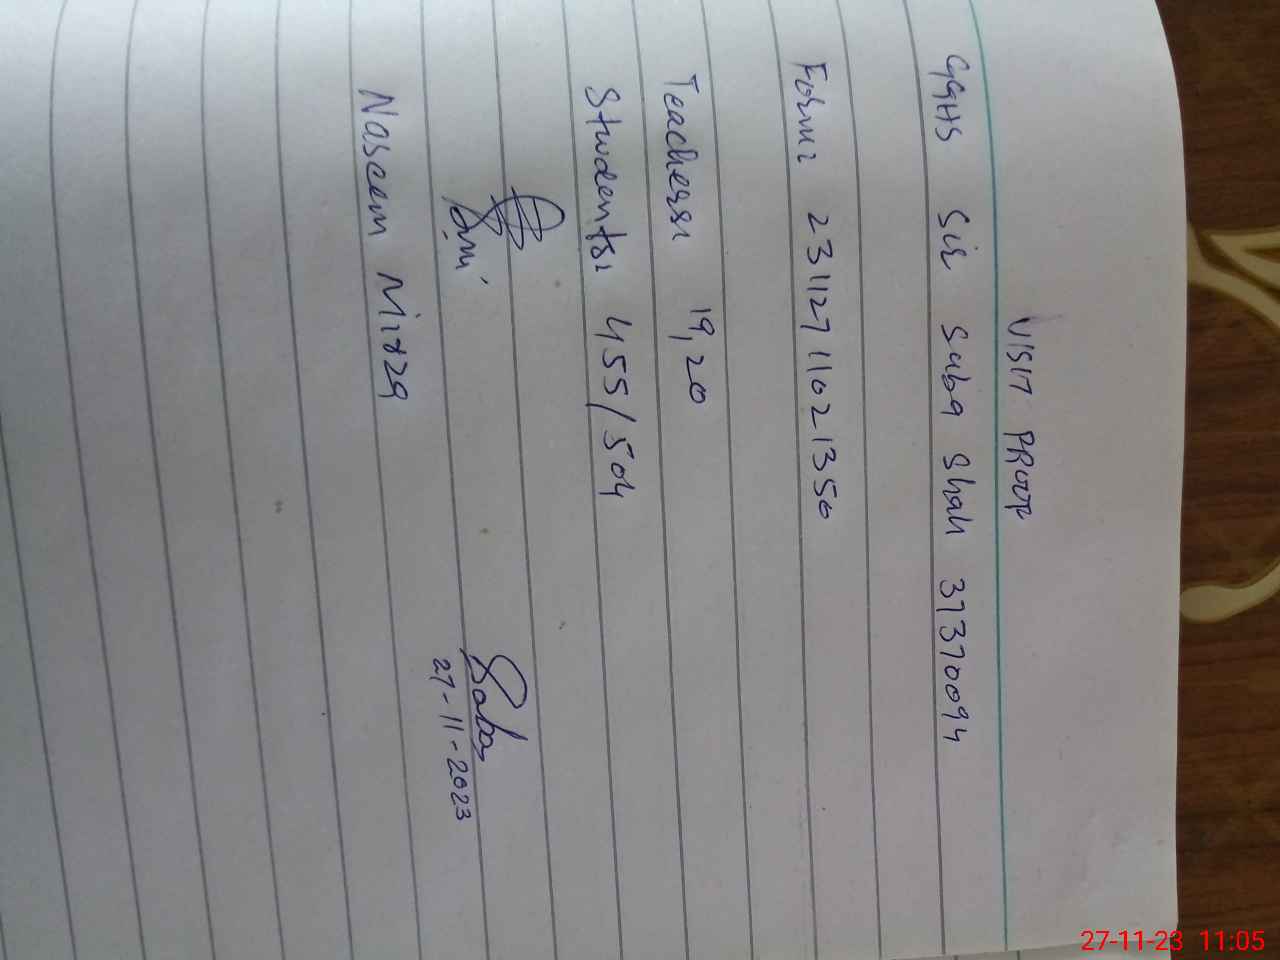 VISIT PROOF
GGHS Sir Suba Shah 37370094
Form: 23112711021350
Teachers: 19,20
Students: 455/504
Saba
27-11-2023
Naseem Mirza
27-11-23 11:05